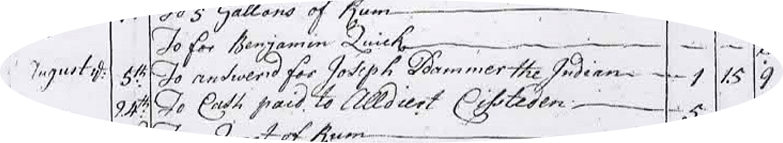 To 5 Gallons of Rum
To for Benjamin Quick
August ye 5th To answerd for Joseph Dammer the Indian 1 15 9
24th To Cash paid to 5
of Rum